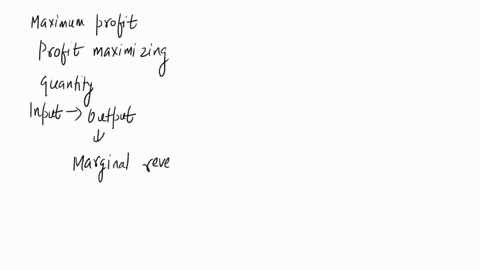 Maximum profit
Profit maximizing
quantity
Input → Output
↓
Marginal reve